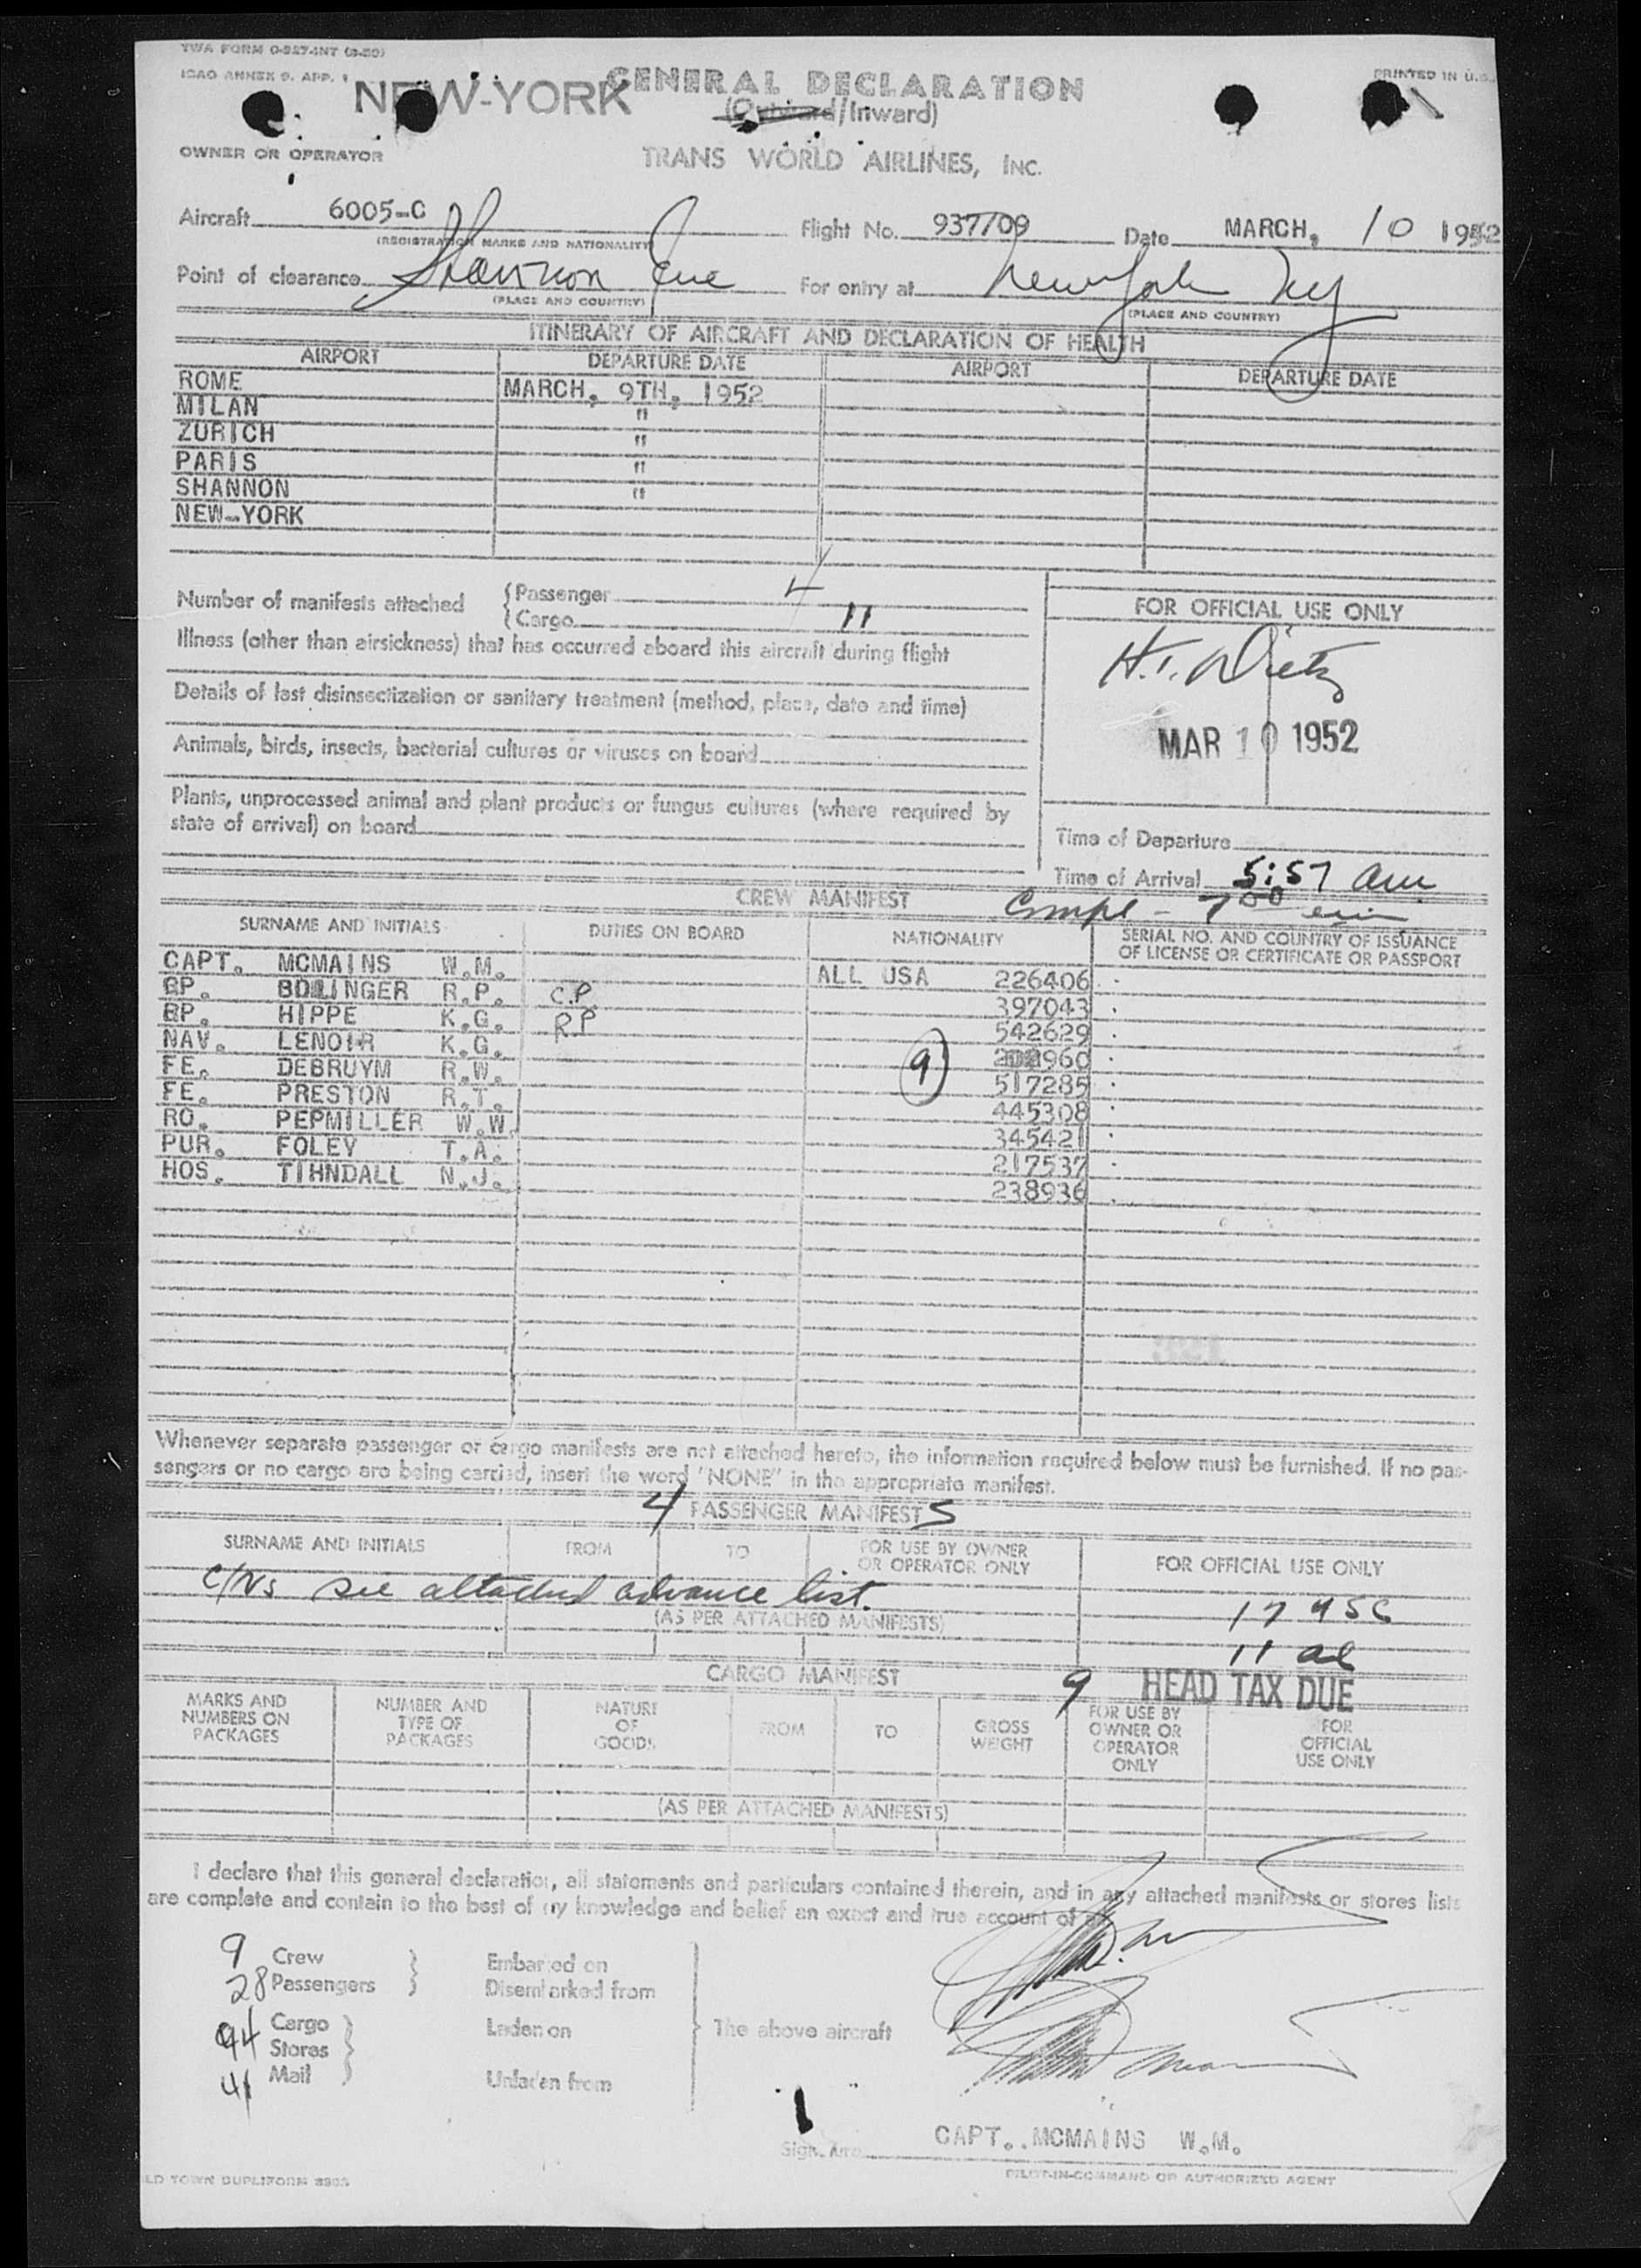 TWA FORM O-927-INT (3-50)
ICAO ANNEX 9. APP. 1
PRINTED IN U.S.
NEW-YORK
GENERAL DECLARATION
(Outward/Inward)
OWNER OR OPERATOR
TRANS WORLD AIRLINES, INC.
Aircraft 6005-C Flight No. 937/09 Date MARCH, 10 1952
(REGISTRATION MARKS AND NATIONALITY)
Point of clearance Shannon Eire For entry at New York NY
(PLACE AND COUNTRY) (PLACE AND COUNTRY)
ITINERARY OF AIRCRAFT AND DECLARATION OF HEALTH
AIRPORT DEPARTURE DATE AIRPORT DEPARTURE DATE
ROME MARCH, 9TH, 1952
MILAN "
ZURICH "
PARIS "
SHANNON "
NEW-YORK
Number of manifests attached { Passenger 4
{ Cargo 11
FOR OFFICIAL USE ONLY
Illness (other than airsickness) that has occurred aboard this aircraft during flight
H.T. Dietz
Details of last disinsectization or sanitary treatment (method, place, date and time)
MAR 10 1952
Animals, birds, insects, bacterial cultures or viruses on board
Plants, unprocessed animal and plant products or fungus cultures (where required by
state of arrival) on board
Time of Departure
Time of Arrival 5:57 am
CREW MANIFEST
Compl - 7 00
SURNAME AND INITIALS DUTIES ON BOARD NATIONALITY SERIAL NO. AND COUNTRY OF ISSUANCE
OF LICENSE OR CERTIFICATE OR PASSPORT
CAPT. MCMAINS W.M. ALL USA 226406
BOLINGER R.P. C.P. 397043
HIPPE K.G. R.P 542629
NAV. LENOIR K.G. 960
FE. DEBRUYM R.W. 9 517285
FE. PRESTON R.T. 445308
RO. PEPMILLER W.W. 345421
PUR. FOLEY T.A. 217537
HOS. TIHNDALL N.J. 238936
Whenever separate passenger or cargo manifests are not attached hereto, the information required below must be furnished. If no pas-
sengers or no cargo are being carried, insert the word "NONE" in the appropriate manifest.
4 PASSENGER MANIFESTS
SURNAME AND INITIALS FROM TO FOR USE BY OWNER
OR OPERATOR ONLY FOR OFFICIAL USE ONLY
see attached advance list.
(AS PER ATTACHED MANIFESTS)
17 USC
11 al
CARGO MANIFEST
9 HEAD TAX DUE
MARKS AND
NUMBERS ON
PACKAGES
NUMBER AND
TYPE OF
PACKAGES
NATURE
OF
GOODS
FROM
TO
GROSS
WEIGHT
FOR USE BY
OWNER OR
OPERATOR
ONLY
FOR
OFFICIAL
USE ONLY
(AS PER ATTACHED MANIFESTS)
I declare that this general declaration, all statements and particulars contained therein, and in any attached manifests or stores lists
are complete and contain to the best of my knowledge and belief an exact and true account of all
9 Crew Embarked on
28 Passengers Disembarked from
94 Cargo Laden on The above aircraft
Stores
41 Mail Unladen from
CAPT. MCMAINS W.M.
Signature
PILOT-IN-COMMAND OR AUTHORIZED AGENT
LD TOWN DUPLIFORM